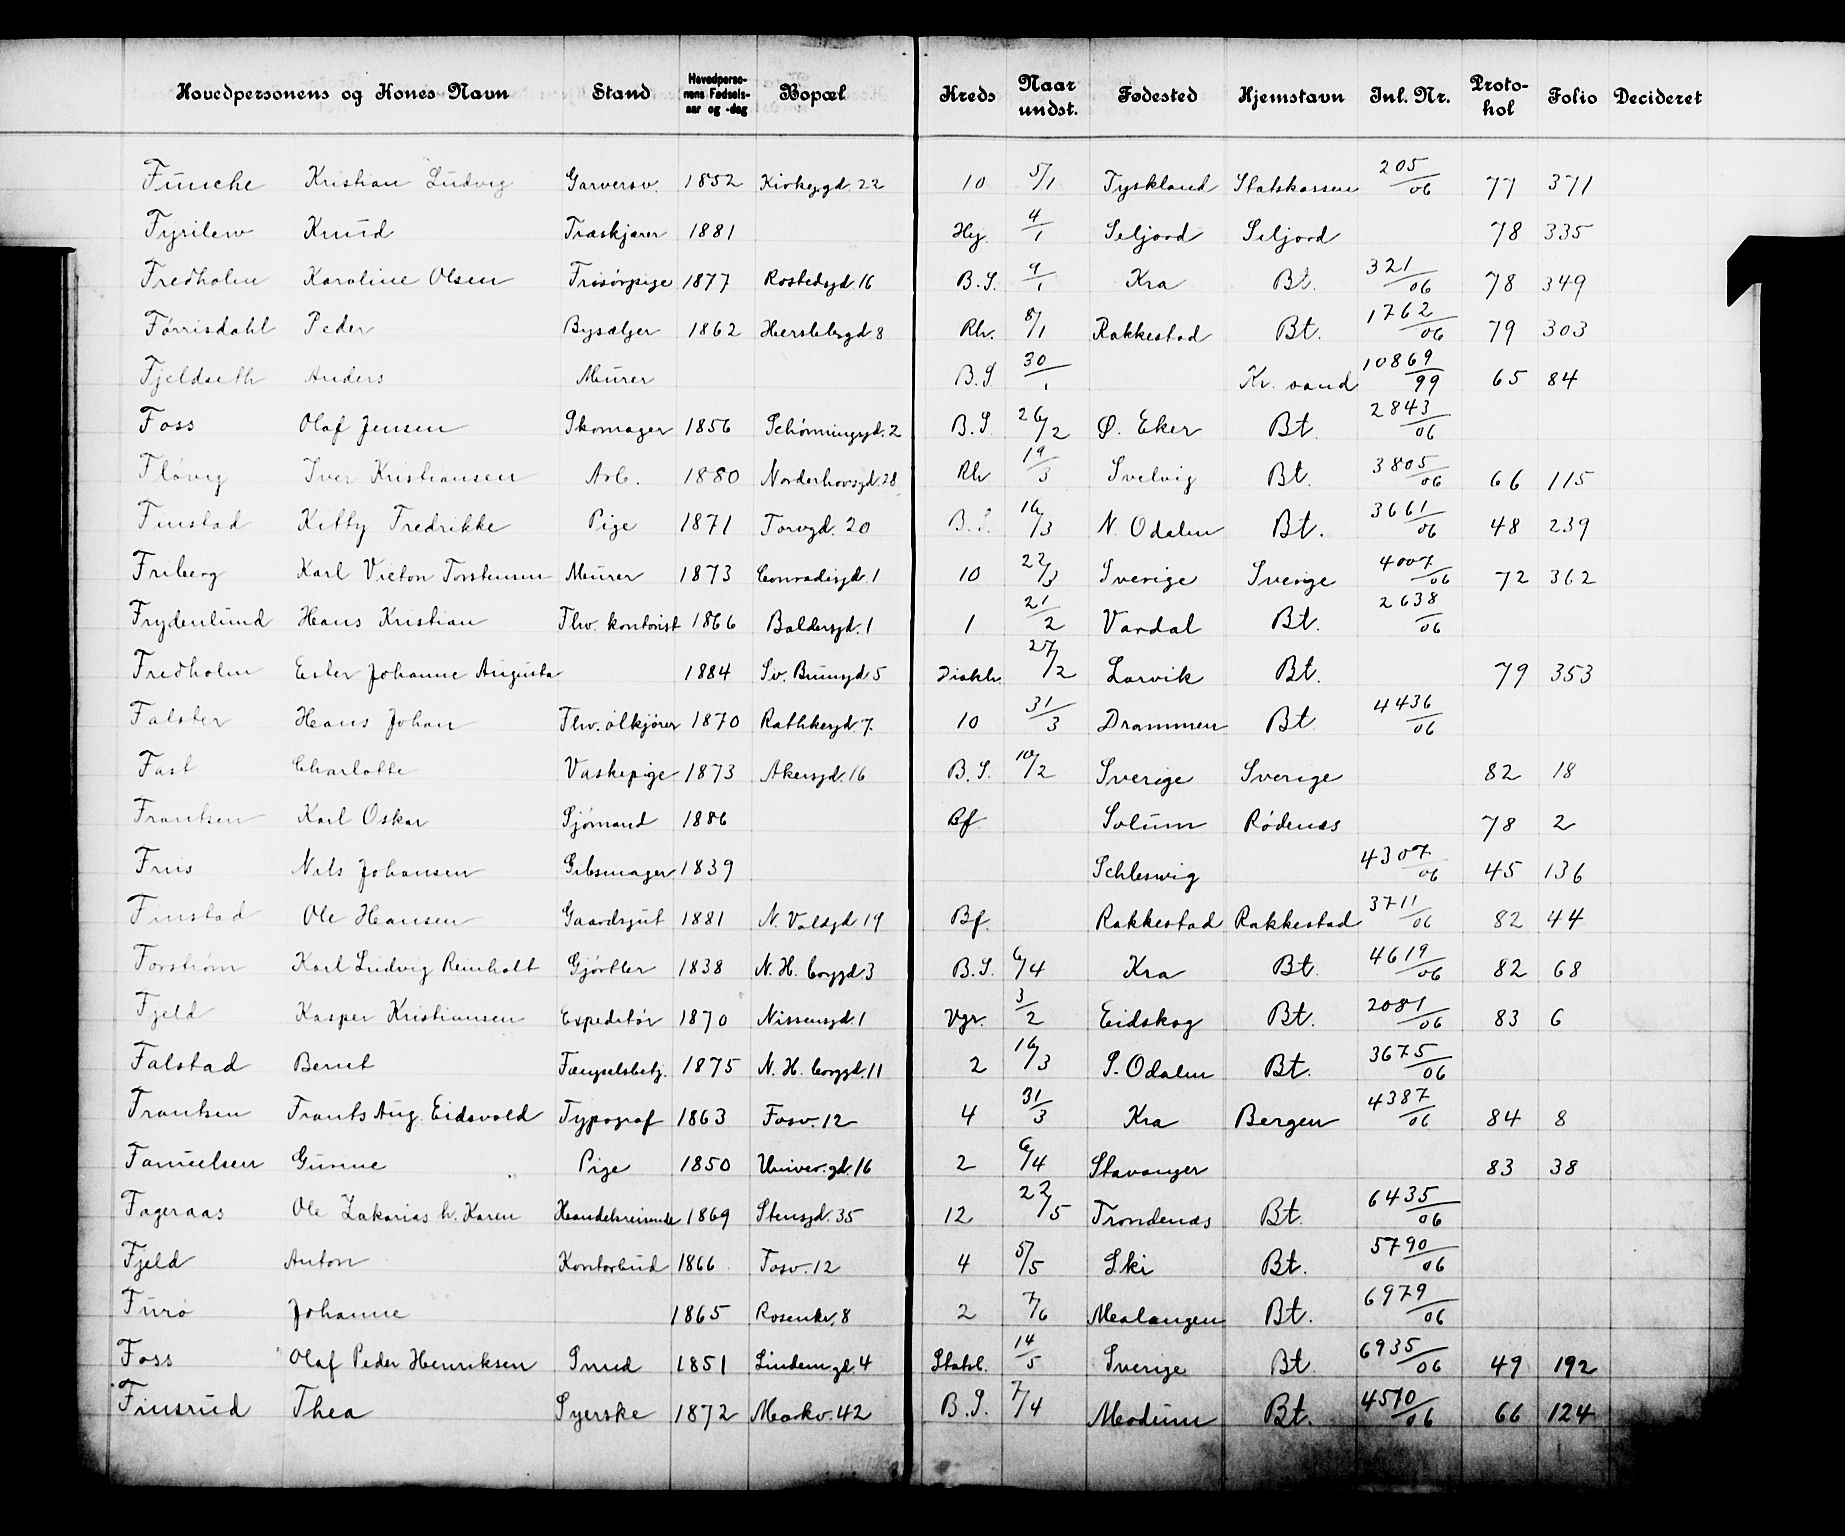 Hovedpersonens og Kones Navn Stand Hovedpersonens Fødselsaar og -dag Bopæl Kreds Naar undst. Fødested Hjemstavn Inl. Nr. Protokol Folio Decideret
Funche Kristian Ludvig Garversv. 1852 Kirkegd. 22 10 5/1 Tyskland Statskassen 205/06 77 371
Knud Træskjærer 1881 Hg. 4/1 Seljord Seljord 78 335
Fredholm Karoline Olsen Frisørpige 1877 Rostedsgd. 16 B.S. 9/1 Kra Bt. 321/06 78 349
Førrisdahl Peder Bysælger 1862 Herslebsgd 8 Rh. 8/1 Rakkestad Bt. 1762/06 79 303
Fjeldseth Anders Murer B.S 30/1 Kr. sand 10869/99 65 84
Foss Olaf Jensen Skomager 1856 Schønningsgd. 2 B.S. 26/2 Ø. Eker Bt. 2843/06
Fløvig Iver Kristiansen Arb. 1880 Norderhovsgd. 28 Rh 19/3 Svelvig Bt. 3805/06 66 115
Finstad Kitty Fredrikke Pige 1871 Torvgd. 20 B.S. 16/3 N. Odalen Bt. 3661/06 48 239
Friberg Karl Victor Torstensen Murer 1873 Conradisgd. 1 10 27/3 Sverige Sverige 4007/06 72 362
Frydenlund Hans Kristian Fhv. kontorist 1866 Baldersgd. 1 1 21/2 Vardal Bt. 2638/06
Fredholm Ester Johanne Augusta 1884 Sv. Bruunsgd 5 Diakh. 27/2 Larvik Bt. 79 353
Falster Hans Johan Fhv. ølkjører 1870 Rathkesgd. 7. 10 31/3 Drammen Bt. 4436/06
Fast Charlotte Vaskepige 1873 Akersgd. 16 B.S. 10/2 Sverige Sverige 82 18
Frantsen Karl Oskar Sjømand 1886 Bf. Solum Rødenes 78 2
Friis Nils Johansen Gibsmager 1839 Schleswig 4307/06 45 136
Finstad Ole Hansen Gaardsgut 1881 N. Voldgd 19 Bf. Rakkestad Rakkestad 3711/06 82 44
Forstrøm Karl Ludvig Reinholt Gjørtler 1838 N. H. Corpgd. 3 B.S. 6/4 Kra Bt. 4619/06 82 68
Fjeld Kasper Kristiansen Expeditør 1870 Nissensgd. 1 Vgr. 3/2 Eidskog Bt. 2081/06 83 6
Falstad Bernt Fængselsbetj. 1875 N. H. Corpgd. 11 2 16/3 S. Odalen Bt. 3675/06
Frantsen Frants Aug. Eidsvold Typograf 1863 Fosv. 12 4 31/3 Kra Bergen 4387/06 84 8
Gunne Pige 1850 Univer. gd. 16 2 6/4 Stavanger 83 38
Fageraas Ole Zakarias h. Karen Handelsreisende 1869 Stensgd. 35 12 22/5 Trondenes Bt. 6435/06
Fjeld Anton Kontorbud 1866 Fosv. 12 4 5/5 Ski Bt. 5790/06
Furø Johanne 1865 Rosenkr. 8 2 7/6 Malangen Bt. 6979/06
Foss Olaf Peder Henriksen Smed 1851 Lindem gd. 4 Statsl. 14/5 Sverige Bt. 6935/06 49 192
Finsrud Thea Syerske 1872 Markv. 42 B.S. 7/4 Modum Bt. 4510/06 66 124